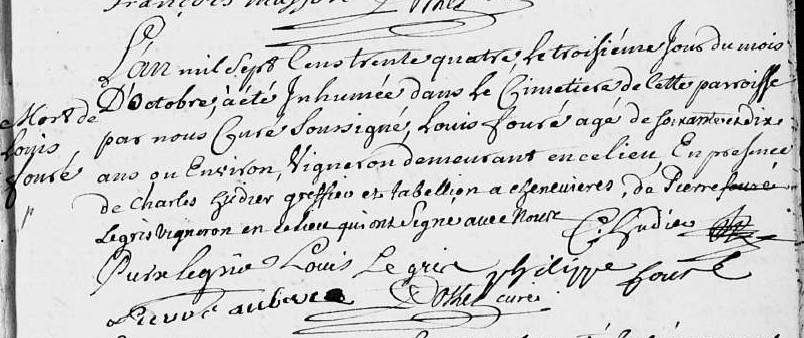 L'an mil Sept Cens trente quatre, le troisiéme Jour du mois
D'octobre, a été Inhumée dans le Cimetiere de Cette parroisse
par nous Curé Soussigné, Louis fouré agé de soixante et dix
ans ou Environ, Vigneron demeurant en ce lieu, En presence
de Charles hudier greffier et tabellion a chenevieres, de Pierre fouré
Legris vigneron en ce lieu qui ont Signé avec Nous
Mort de
Louis
fouré
C. hudier
Louis Legris philippe fouré
curé